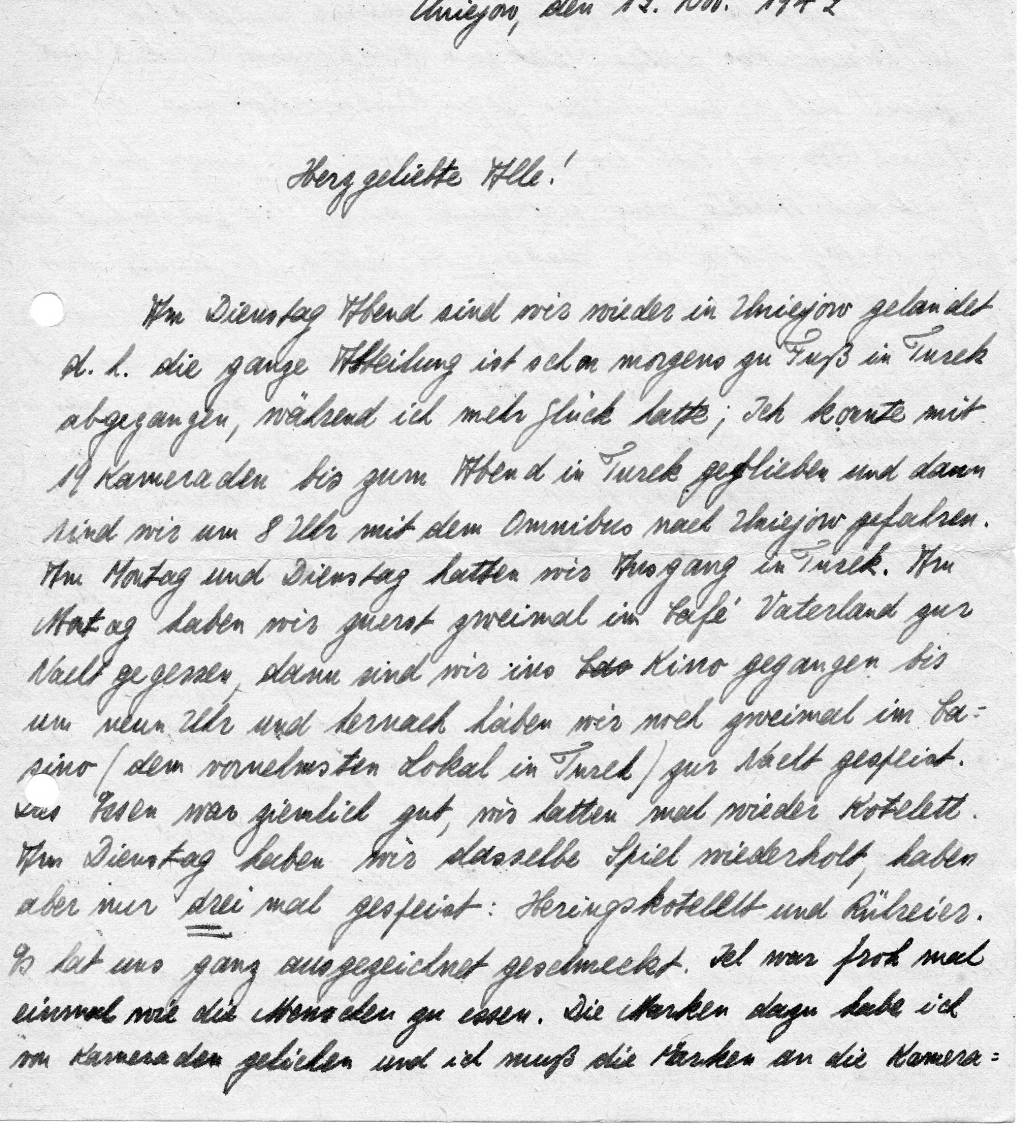 Uniejow, den 12. Nov. 1942
Herzgeliebte Alle!
Am Dienstag Abend sind wir wieder in Uniejow gelandet
d. h. die ganze Abteilung ist schon morgens zu Fuß in Turek
abgegangen, während ich mehr Glück hatte; Ich konnte mit
19 Kameraden bis zum Abend in Turek geblieben und dann
sind wir um 8 Uhr mit dem Omnibus nach Uniejow gefahren.
Am Montag und Dienstag hatten wir Ausgang in Turek. Am
Montag haben wir zuerst zweimal im Café Vaterland zur
Nacht gegessen, dann sind wir ins Kino gegangen bis
um neun Uhr und hernach haben wir noch zweimal im Ca=
sino (dem vornehmsten Lokal in Turek) zur Nacht gespeist.
Das Essen war ziemlich gut, wir hatten mal wieder Kotelett.
Am Dienstag haben wir dasselbe Spiel wiederholt, haben
aber nur drei mal gespeist: Heringskotellett und Rühreier.
Es hat uns ganz ausgezeichnet geschmeckt. Ich war froh mal
einmal wie die Menschen zu essen. Die Marken dazu habe ich
von Kameraden geliehen und ich muß die Marken an die Kamera=